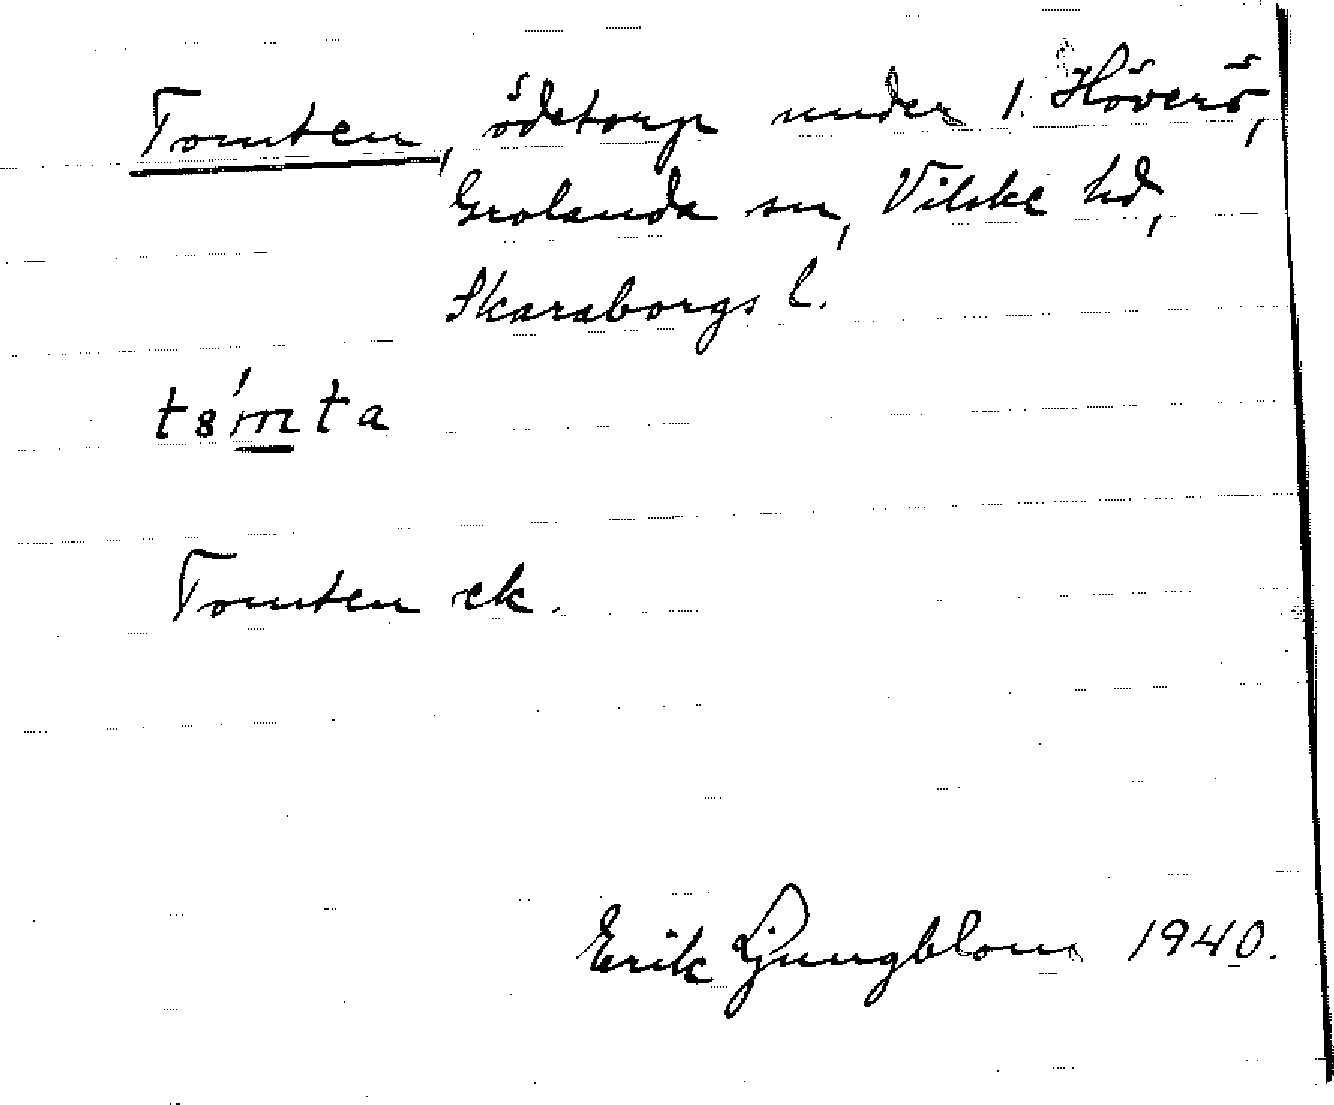 Tomten, ödetorp under 1 Höverö,
Grolanda sn, Vilske hd,
Skaraborgs l.
tsḿta
Tomten ek.
Erik Ljungblom 1940.